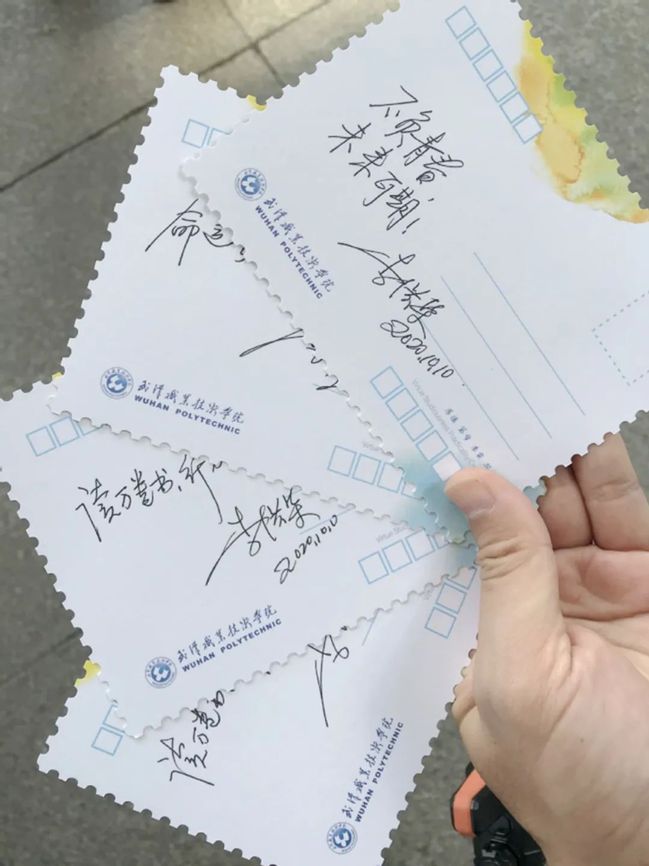 不负青春，
未来可期！
2020.10.10
武汉职业技术学院
WUHAN POLYTECHNIC
命运
武汉职业技术学院
WUHAN POLYTECHNIC
读万卷书，行
2020.10.10
武汉职业技术学院
WUHAN POLYTECHNIC
读万卷书
武汉职业技术学院
WUHAN POLYTECHNIC